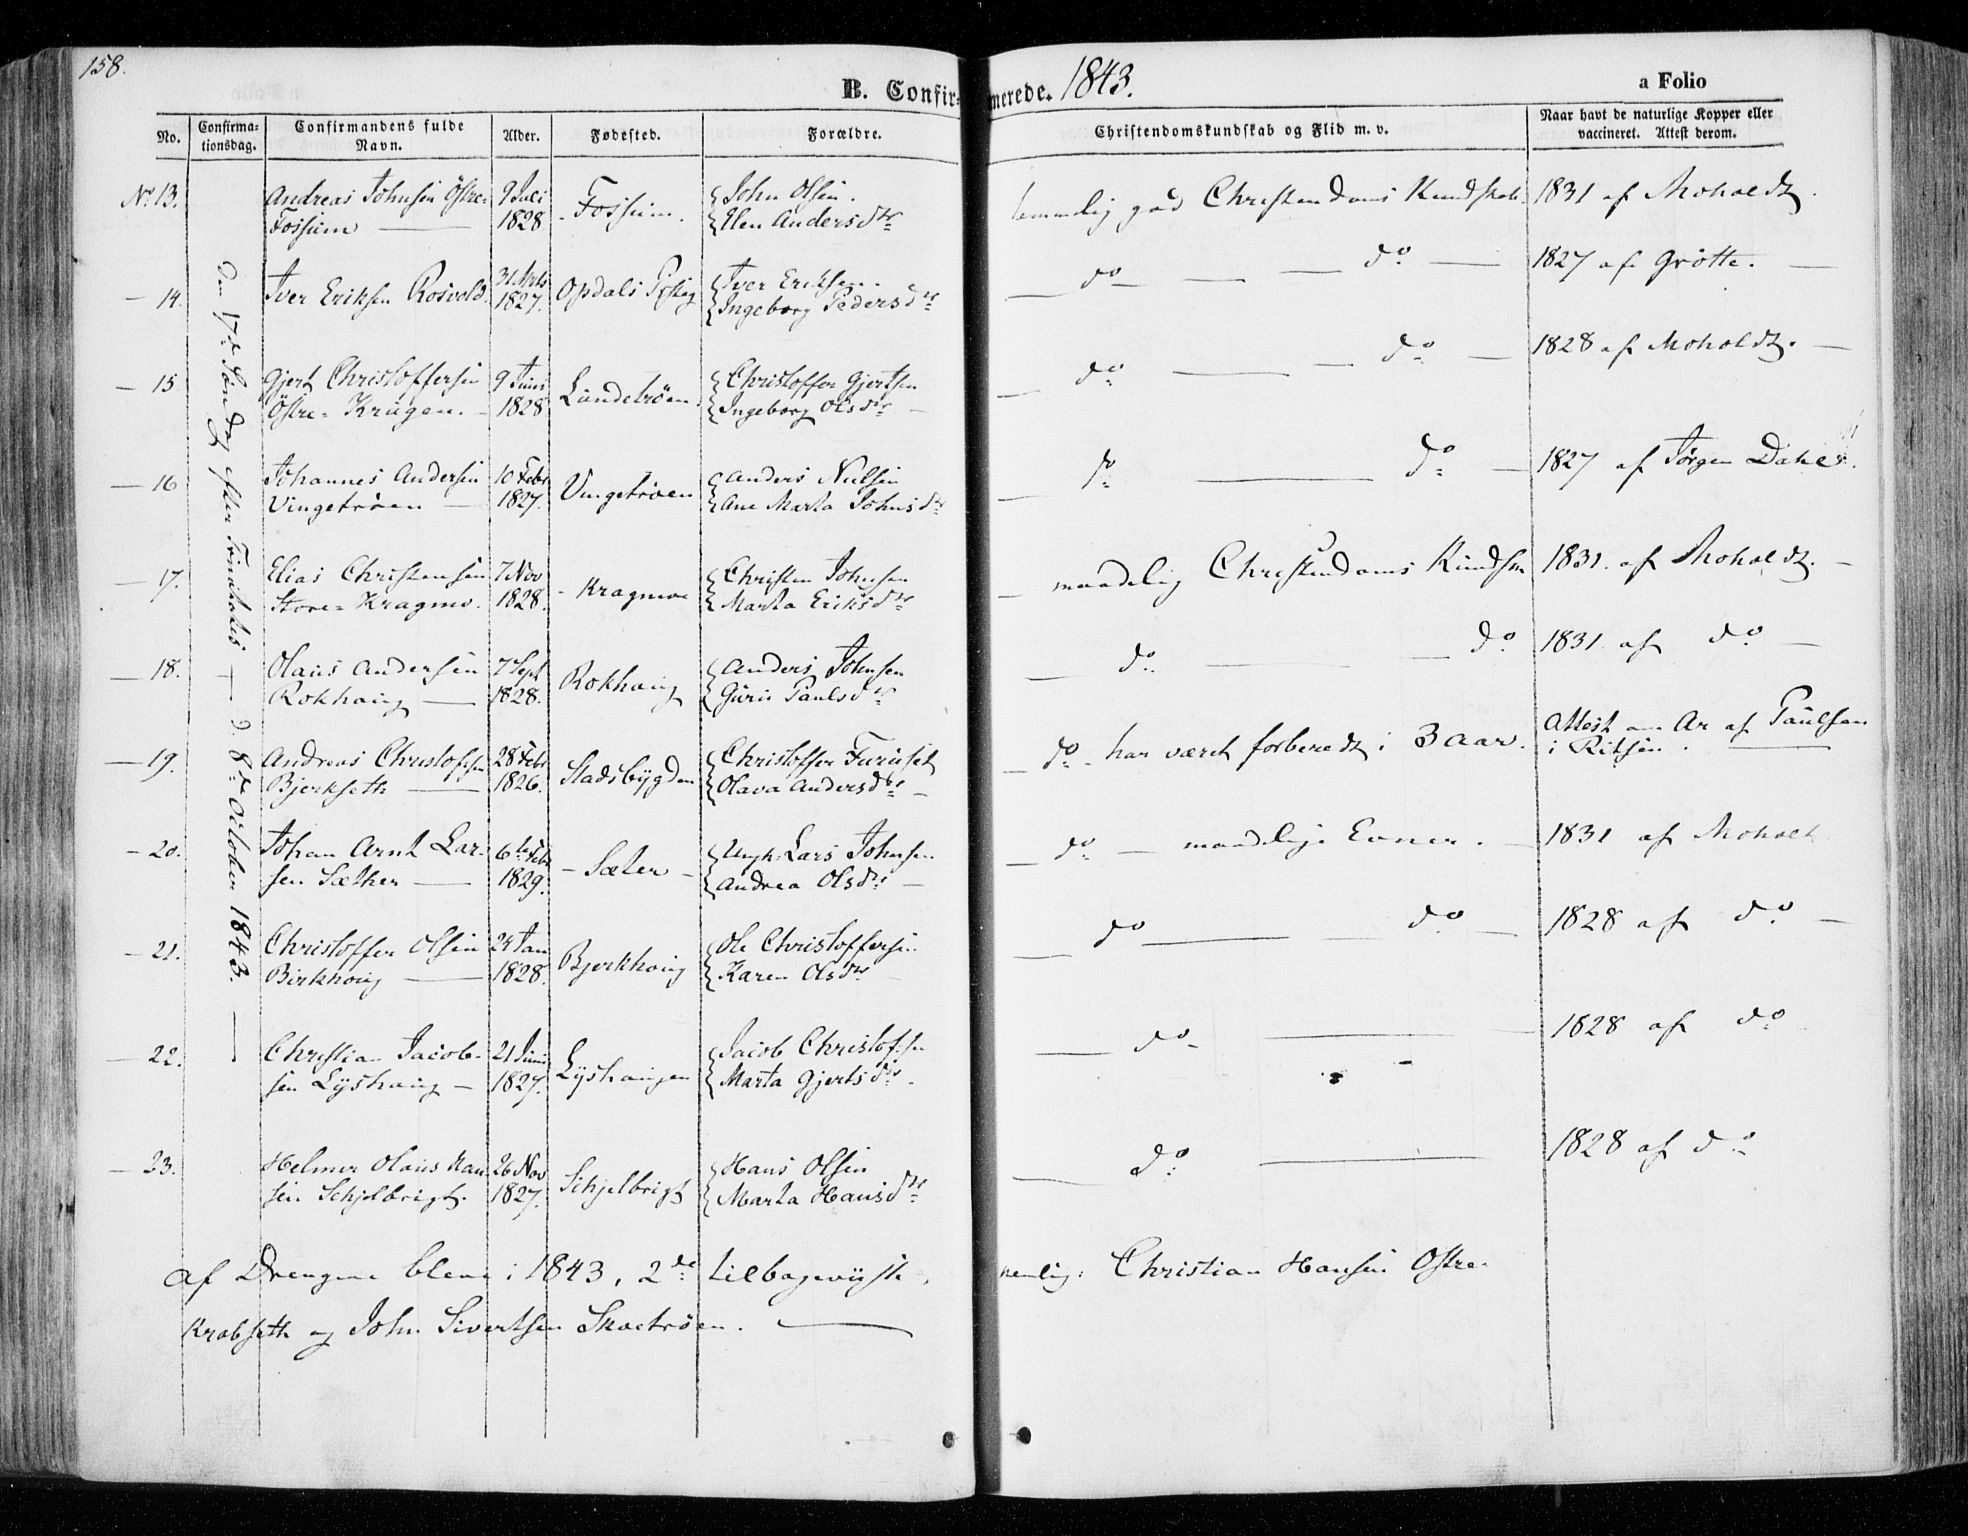 158.
B. Confirmerede. 1843.
a Folio
No. Confirmationsdag. Confirmandens fulde Navn. Alder. Fødested. Forældre. Christendomskundskab og Flid m. v. Naar havt de naturlige Kopper eller vaccineret. Attest derom.
Den 17de Søndag efter Trinitatis — d. 8de October 1843. —
No 13. Andreas Johnsen Östre- 9 Juli Fossum. John Olsen. temmelig god Christendoms Kundskab. 1831 af Moholdt.
Fossum — 1828 Elen Andersdtr
— 14. Iver Eriksen Rosvold. 31 Marts Opdals Iver Eriksen. do — do — 1827 af Grötte. —
1827. Ingeborg Pedersdtr
— 15 Gjert Christoffersen 9 Juni Landetröen Christoffer Gjertsen do — do — 1828 af Moholdt. —
Östre- Krügen. 1828 Ingeborg Olsdtr
— 16 Johannes Andersen 10 Febr Vingetröen Anders Nielsen do — do — 1827 af Jörgen Dahes.
Vingetröen — 1827. Ane Marta Johnsdtr
— 17. Elias Christensen 7 Nov Kragmoe Christen Johnsen maadelig Christendoms 1831. af Moholdt. —
Store- Kragmo. 1828. Marta Eriksdtr
— 18. Olaus Andersen 7 Sept Rokhaug Anders Johnsen do — do 1831. af do —
Rokhaug — 1828. Guru Paulsdtr
— 19. Andreas Christofsen 28 Febr Stadsbygden Christoffer Furuset do - har været forberedt i 3 aar. Attest af Paulsen
Bjerkseth — 1826. Olava Andersdtr — i Ritsen.
— 20. Johan Arnt Lar- 6te Febr - Sæter - Ungk: Lars Johnsen do — maadelige Evner. — 1831 af Moholt
sen Sæther — 1829. Andrea Olsdtr —
— 21. Christoffer Olsen 24 Jan Bjerkhaug Ole Christoffersen do — do — 1828 af do —
Birkhoug — 1828. Karen Olsdtr
— 22. Christian Jacob- 21 Juni Lyshaugen Jacob Christofsen do — 1828 af do
sen Lyshaug — 1827. Marta Gjertsdtr
— 23. Helmer Olaus Han- 26 Nov Schjelbrigt Hans Olsen do — 1828 af do
sen Schjelbrigt. 1827. Marta Hansdtr
af Drengene bleve i 1843, 2de tilbageviiste, nemlig: Christian Hansen Ostre-
Krabseth og John Sivertsen Skoetröen. —